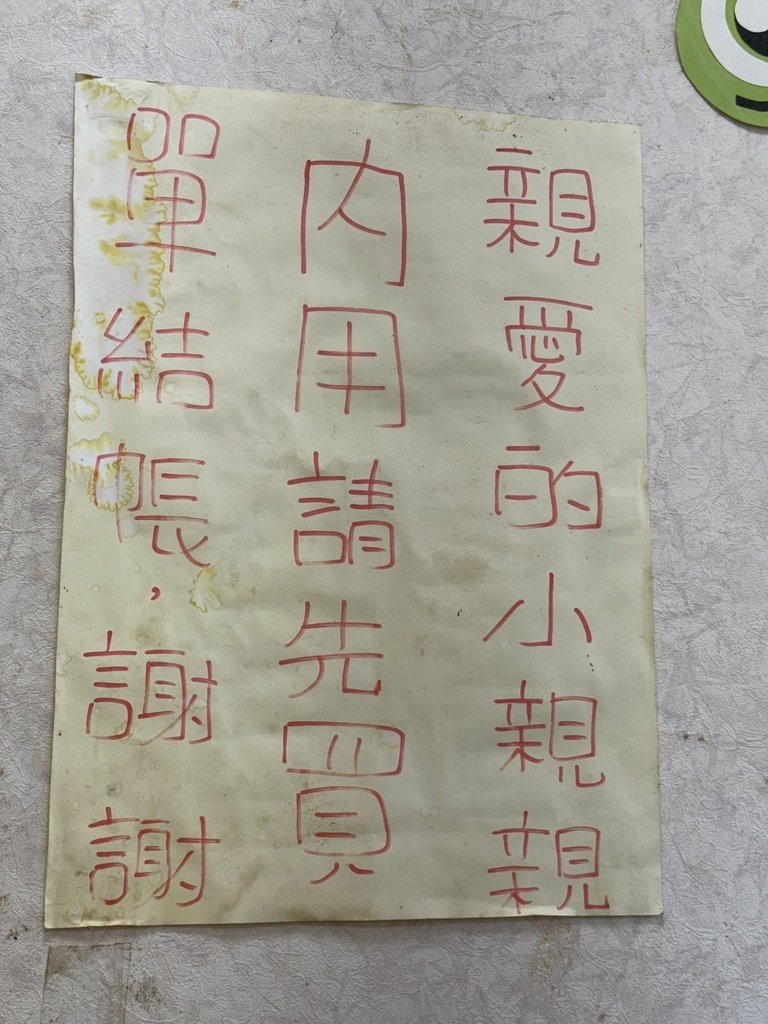 親愛的小親親
內用請先買
單結帳，謝謝